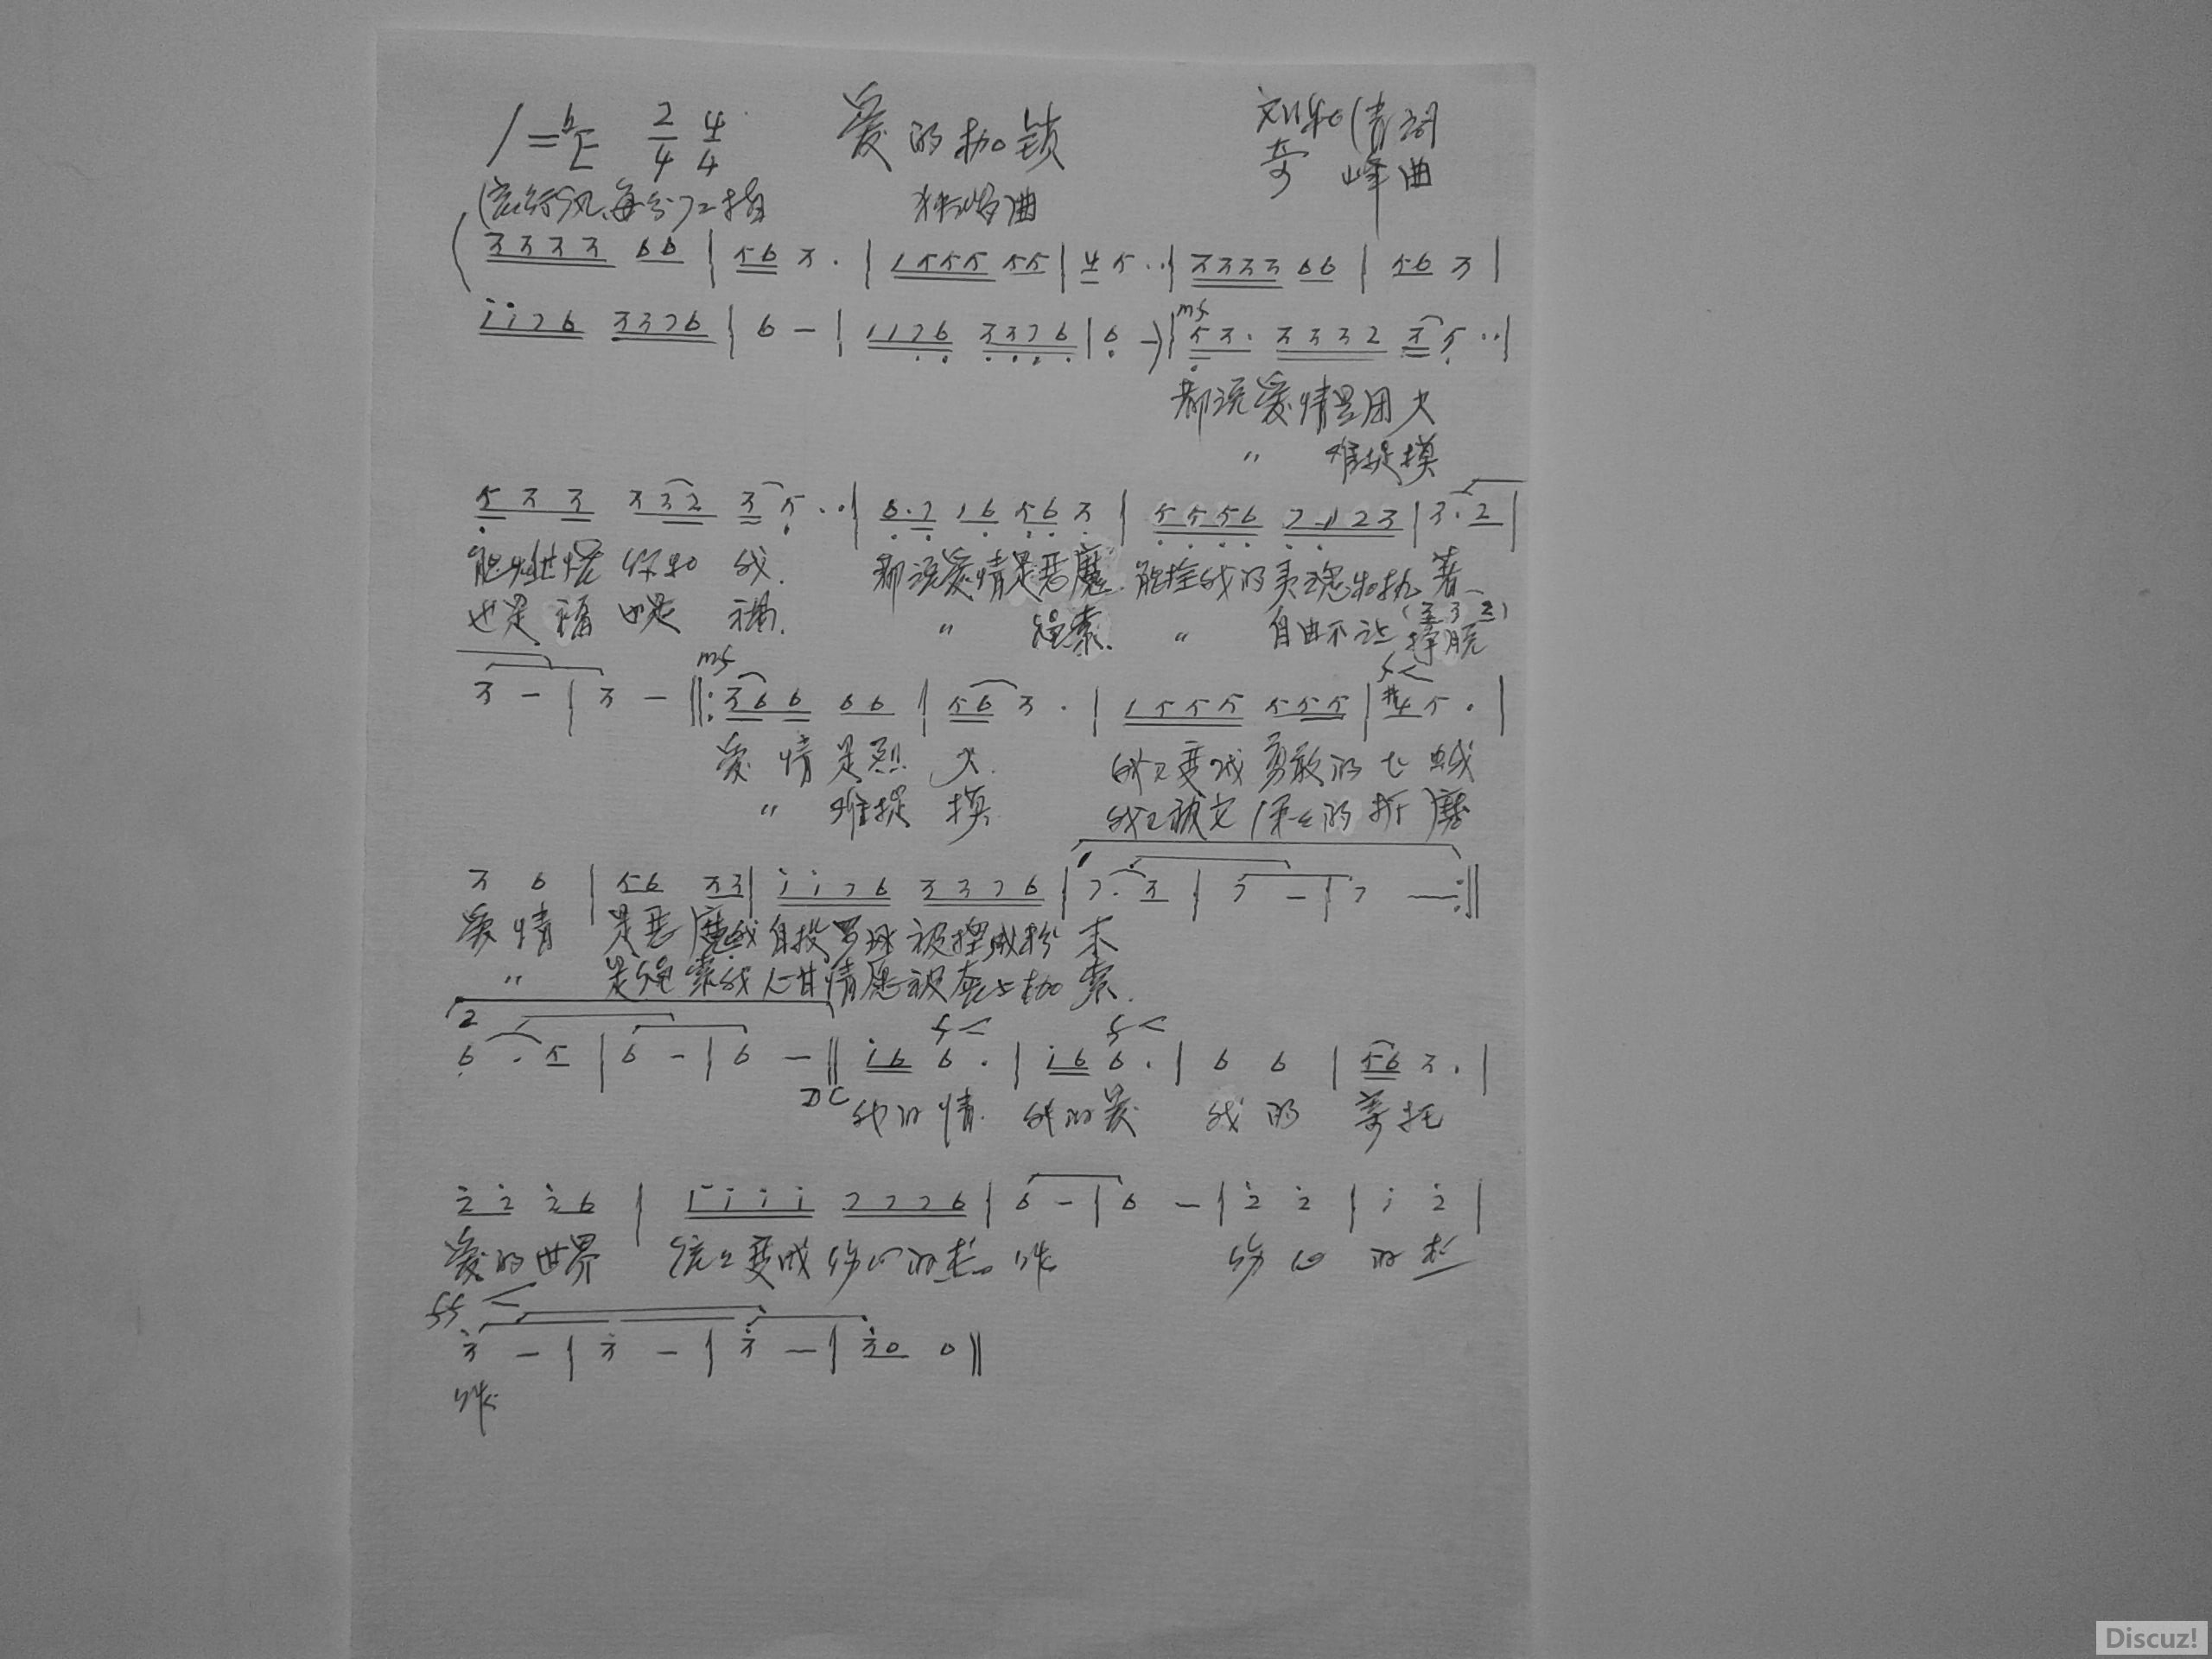 1=♭E 2/4 4/4 爱的枷锁 刘年(青词
奇峰曲
(流行风、每分72拍 独唱曲
(3333 66 | 56 3 . | 1555 55 | 4 5 .. | 3333 66 | 56 3 |
ii76 3376 | 6 - | 1176 3376 | 6 -) | mf 5 3 . 3332 3 5 .. |
都说爱情是团火
〃 难捉摸
5 3 3 3 32 3 5 .. | 6.7 16 56 3 | 5556 7123 | 3 . 2 |
能燃烧你和我. 都说爱情是恶魔. 能拴我的灵魂和执著
也是福也是祸. 〃 绳索. 〃 自由不让(3 3 2)挣脱
3 - | 3 - ‖: mf 36 6 66 | 56 3 . | 1555 555 | f< #4 5 . |
爱情是烈火. 我又变成勇敢的飞蛾
〃 难捉摸 我又被 的折磨
3 6 | 56 33 | ii76 3376 | 7 . 3 | 7 - | 7 - :‖
爱情是恶魔我自投罗网被捏成粉末
〃 是绳索我心甘情愿被套上枷索.
2
6 . 5 | 6 - | 6 - ‖ i6 f< 6 . | i6 f< 6 . | 6 6 | 56 3 . |
DC 我的情. 我的爱 我的寄托
2 2 2 6 | i i i i 7776 | 6 - | 6 - | 2 2 | i 2 |
爱的世界 变成伤心的杰作 伤心的杰
ff <
3 - | 3 - | 3 - | 30 0 ‖
作
Discuz!